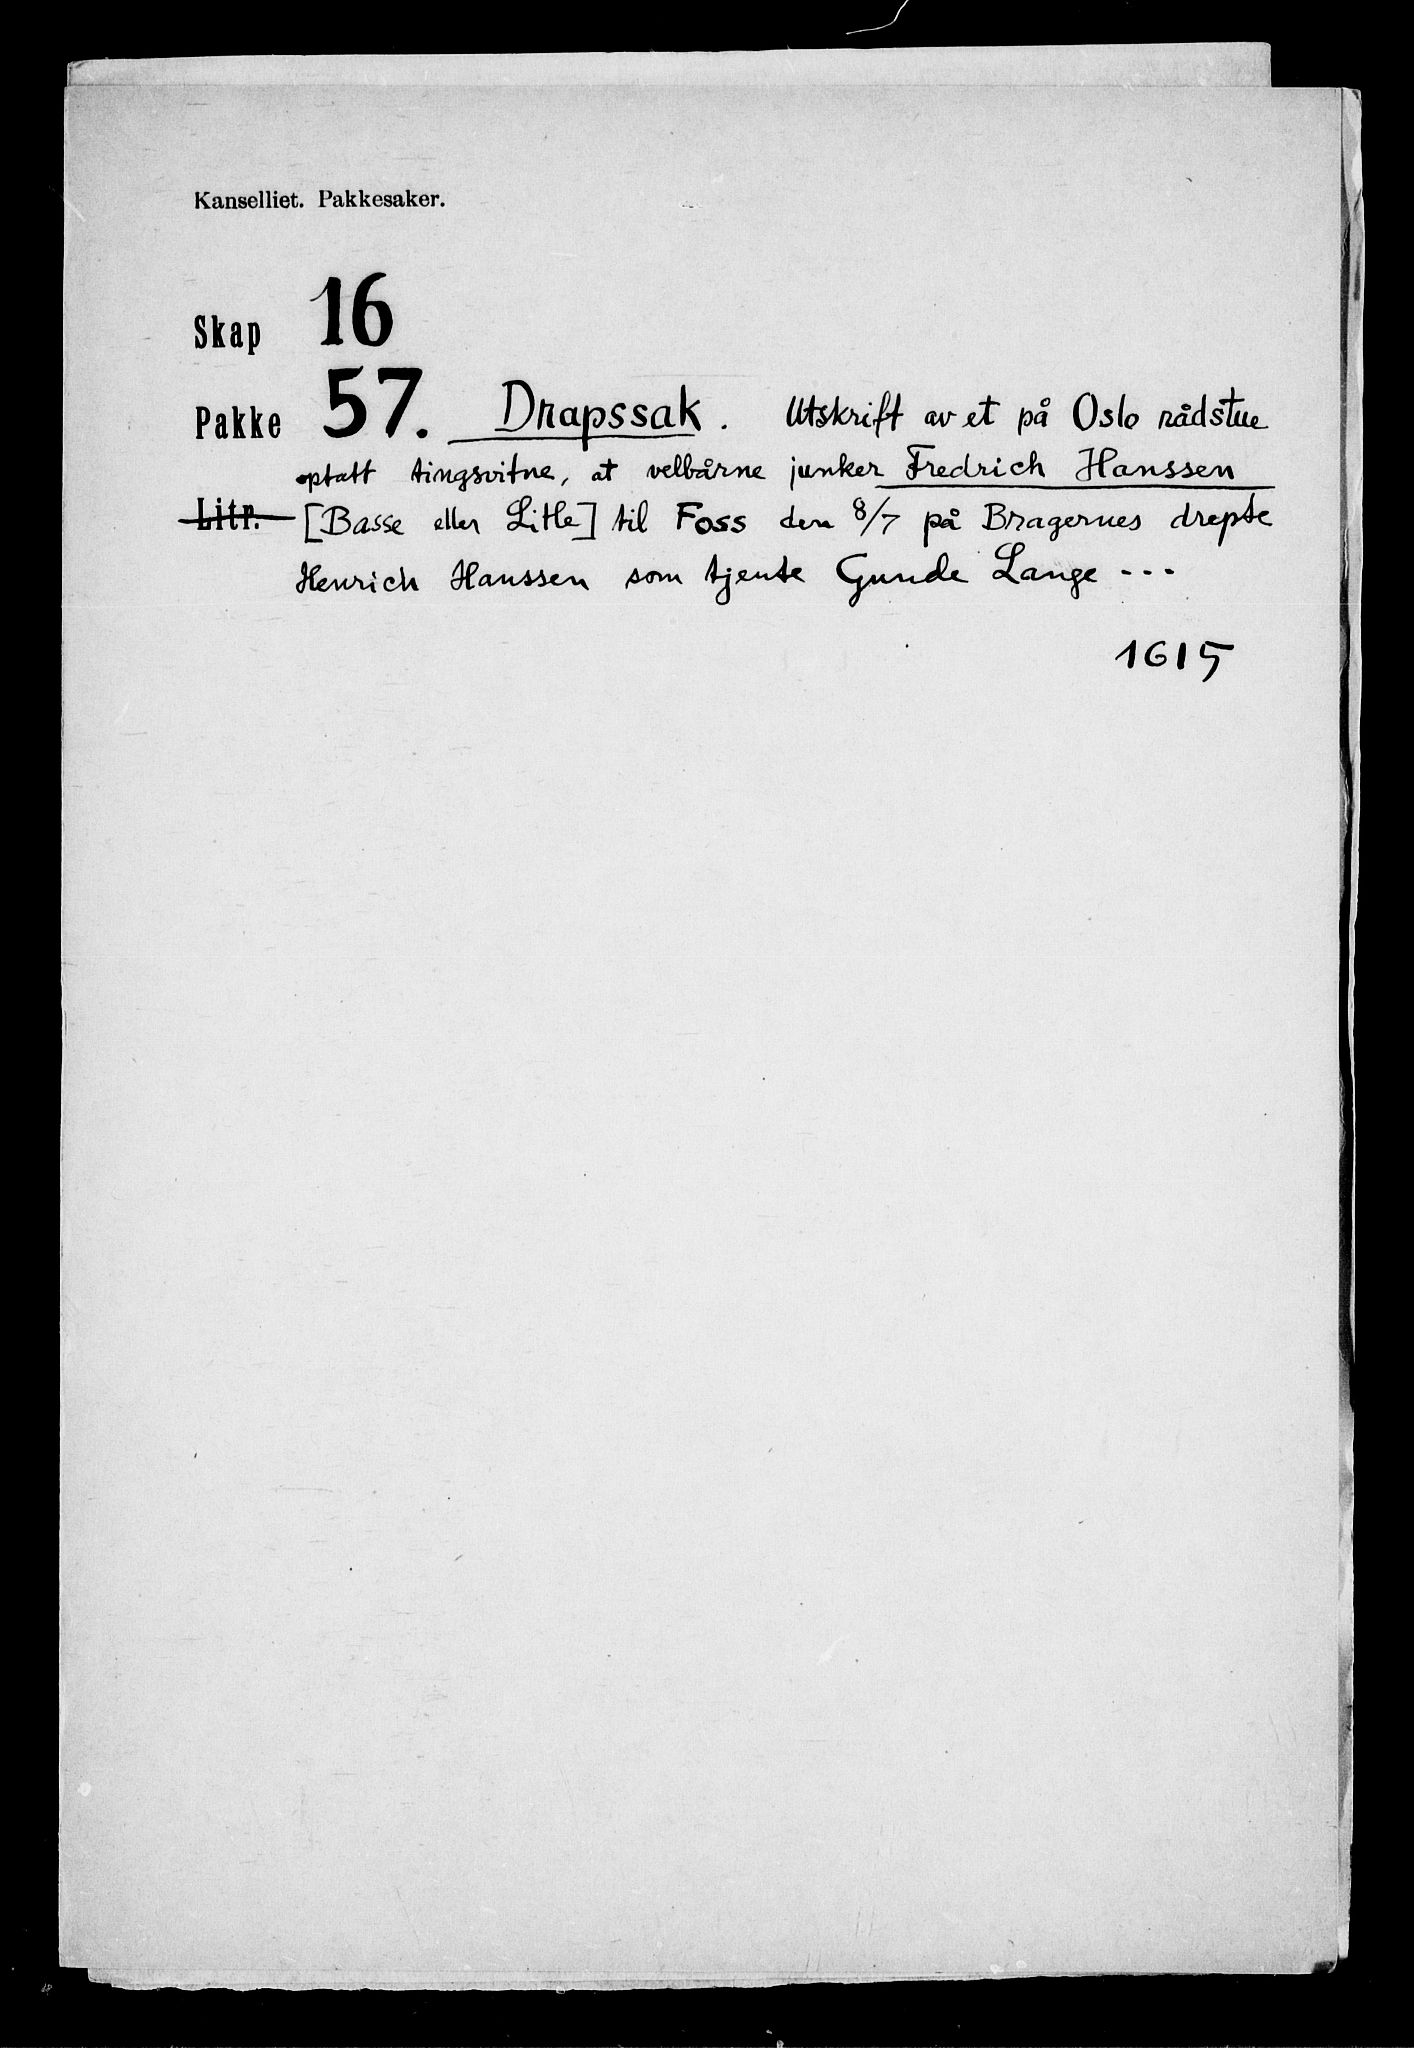 Kanselliet. Pakkesaker.
Skap 16
Pakke 57. Drapssak. Utskrift av et på Oslo rådstue
optatt tingsvitne, at velbårne junker Fredrich Hanssen
Litr. [Basse eller Litle] til Foss den 8/7 på Bragernes drepte
Henrich Hanssen som tjente Gunde Lange ---
1615